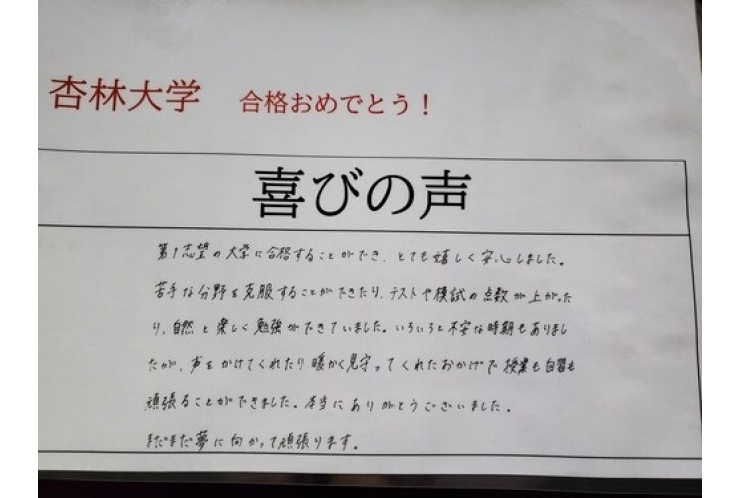 杏林大学 合格おめでとう！
喜びの声
第1志望の大学に合格することができ、とても嬉しく安心しました。
苦手な分野を克服することができたり、テストや模試の点数が上がった
り、自然と楽しく勉強ができていました。いろいろと不安な時期もありまし
たが、声をかけてくれたり暖かく見守ってくれたおかげで授業も自習も
頑張ることができました。本当にありがとうございました。
まだまだ夢に向かって頑張ります。